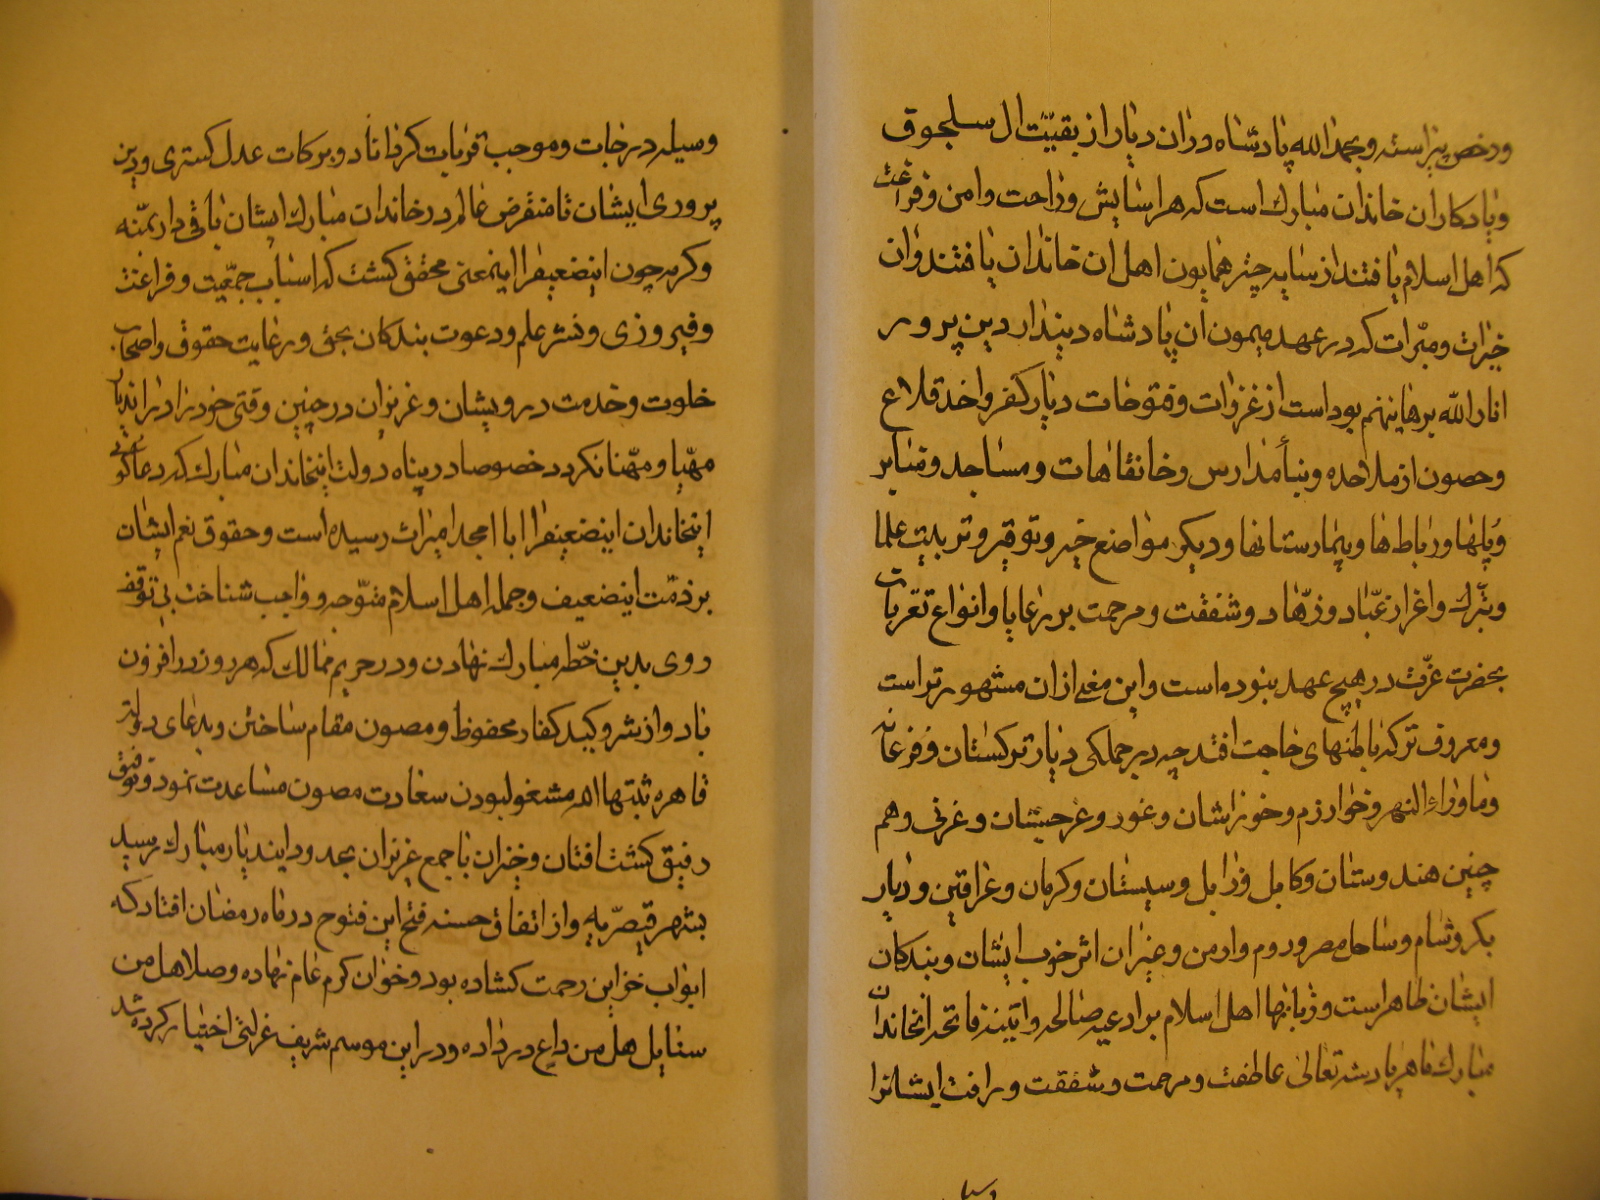 ورخص پیراسته و بحمد الله پادشاه دران دیار از بقیت ال سلجوق
و یادکاران خاندان مبارك است که هر اسایش و راحت و امن و فراغت
که اهل اسلام یافتند از سایه چتر همایون اهل ان خاندان یافتند و ان
خیرات و مبرات که در عهد میمون ان پادشاه دیندار دین پرور
انار الله برهانهم بوداست از غزوات و فتوحات دیار کفر و اخذ قلاع
و حصون از ملاحده و بنأ مدارس و خانقاهات و مساجد و منابر
و پلها و رباطها و بیمارستانها و دیکر مواضع خیر و توقیر و تربیت علما
و تبرك و اعزاز عباد و زهاد و شفقت و مرحمت بر رعایا و انواع تقربات
بحضرت عزت در هیچ عهد بنوده است و این معنی ازان مشهورتر است
و معروف تر که باطنهای حاجت افتد چه در جملکی دیار ترکستان و فرغانه
و ماوراء النهر و خوارزم و خراسان و غور و غرجستان و غزنی و هم
چنین هندوستان و کابل و زابل و سیستان و کرمان و عراقین و دیار
بکر و شام و ساحل مصر و روم و ارمن و غیران اثر خوب ایشان و بندکان
ایشان ظاهر است و زبانها اهل اسلام بر ادعیه صالحه و اثنیه فاتحه انخاندان
مبارك ماهر بادشه تعالی عاطفت و مرحمت و شفقت و رافت ایشانرا
وسیله
وسیله درجات و موجب قربات کرداناد و برکات عدل کستری و دین
پروری ایشان تا منقرض عالم در خاندان مبارك ایشان باقی دارد بمنه
و کرمه چون اینضعیفرا اینمعنی محقق کشت که اسباب جمعیت و فراغت
و فیروزی و نشر علم و دعوت بندکان بحق و رعایت حقوق و اصحاب
خلوت و خدمت درویشان و عزیزان در چنین وقتی خود را دراندیار
مهیا و مهنا نکردد خصوصا در پناه دولت اینخاندان مبارك که دعاکوئی
اینخاندان اینضعیفرا ابا امجد امیراث رسیده است و حقوق نعم ایشان
بر ذمت اینضعیف و جمله اهل اسلام متوجه و واجب شناخت بی توقف
روی بدین خطه مبارك نهادن و در حریم ممالك که هر روز در افزون
باد و از شر و کید کفار محفوظ و مصون مقام ساختن و بدعای دولت
قاهره ثبتها الله مشغول بودن سعادت مصون مساعدت نمود و توفیق
رفیق کشت افتان و خیزان با جمع عزیزان بحدود ایندیار مبارك رسید
بشهر قیصریه و از اتفاق حسنه فتح این فتوح در ماه رمضان افتاد که
ابواب خزاین رحمت کشاده بود و خوان کرم عام نهاده و صلا هل من
سایل هل من داع در داده و در این موسم شریف عزلتی اختیار کرده شد